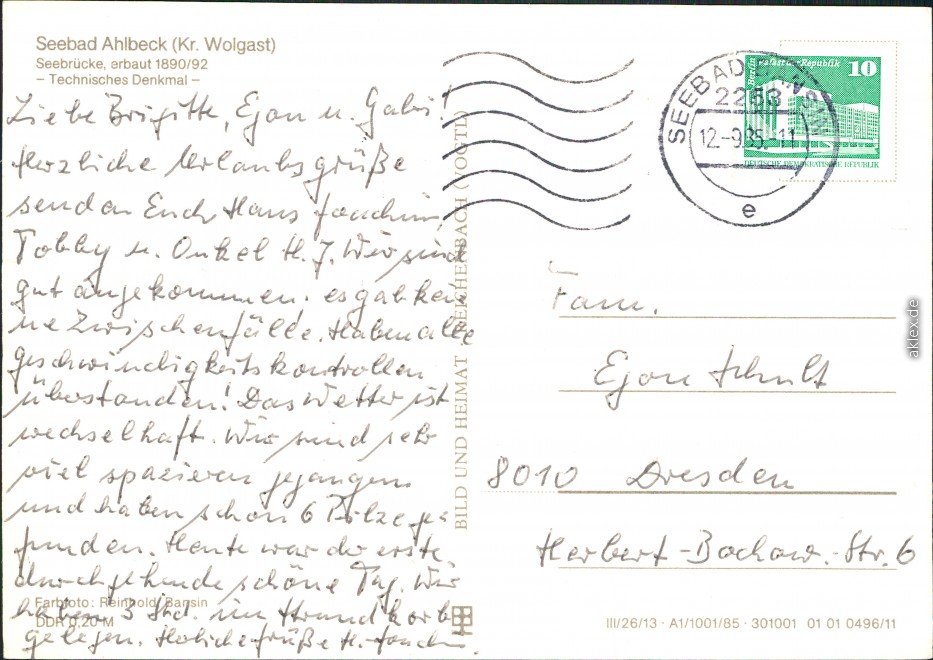 Seebad Ahlbeck (Kr. Wolgast)
Seebrücke, erbaut 1890/92
– Technisches Denkmal –
Liebe Brigitte, Egon u. Gabi!
Herzliche Urlaubsgrüße
senden Euch Hans Joachim,
Tobby u. Onkel H. J. Wir sind
gut angekommen. es gab kei
ne Zwischenfälle. Haben alle
geschwindigkeitskontrollen
überstanden! Das Wetter ist
wechselhaft. Wir sind sehr
viel spazieren gegangen
und haben schon 6 Pilze ge-
funden. Heute war der erste
durchgehende schöne Tag. Wir
haben 3 Std. im Strandkorb
gelegen. Herzliche Grüße H. Joach
Farbfoto: Reinhold, Bansin
DDR 0,20 M
BILD UND HEIMAT REICHENBACH (VOGTL)
SEEBAD BANSIN
2253
12.-9.85.-11
e
Berlin Palast der Republik 10
DEUTSCHE DEMOKRATISCHE REPUBLIK
Fam.
Egon Schult
8010 Dresden
Herbert-Bochow-Str. 6
III/26/13 · A1/1001/85 · 301001 01 01 0496/11
aklex.de